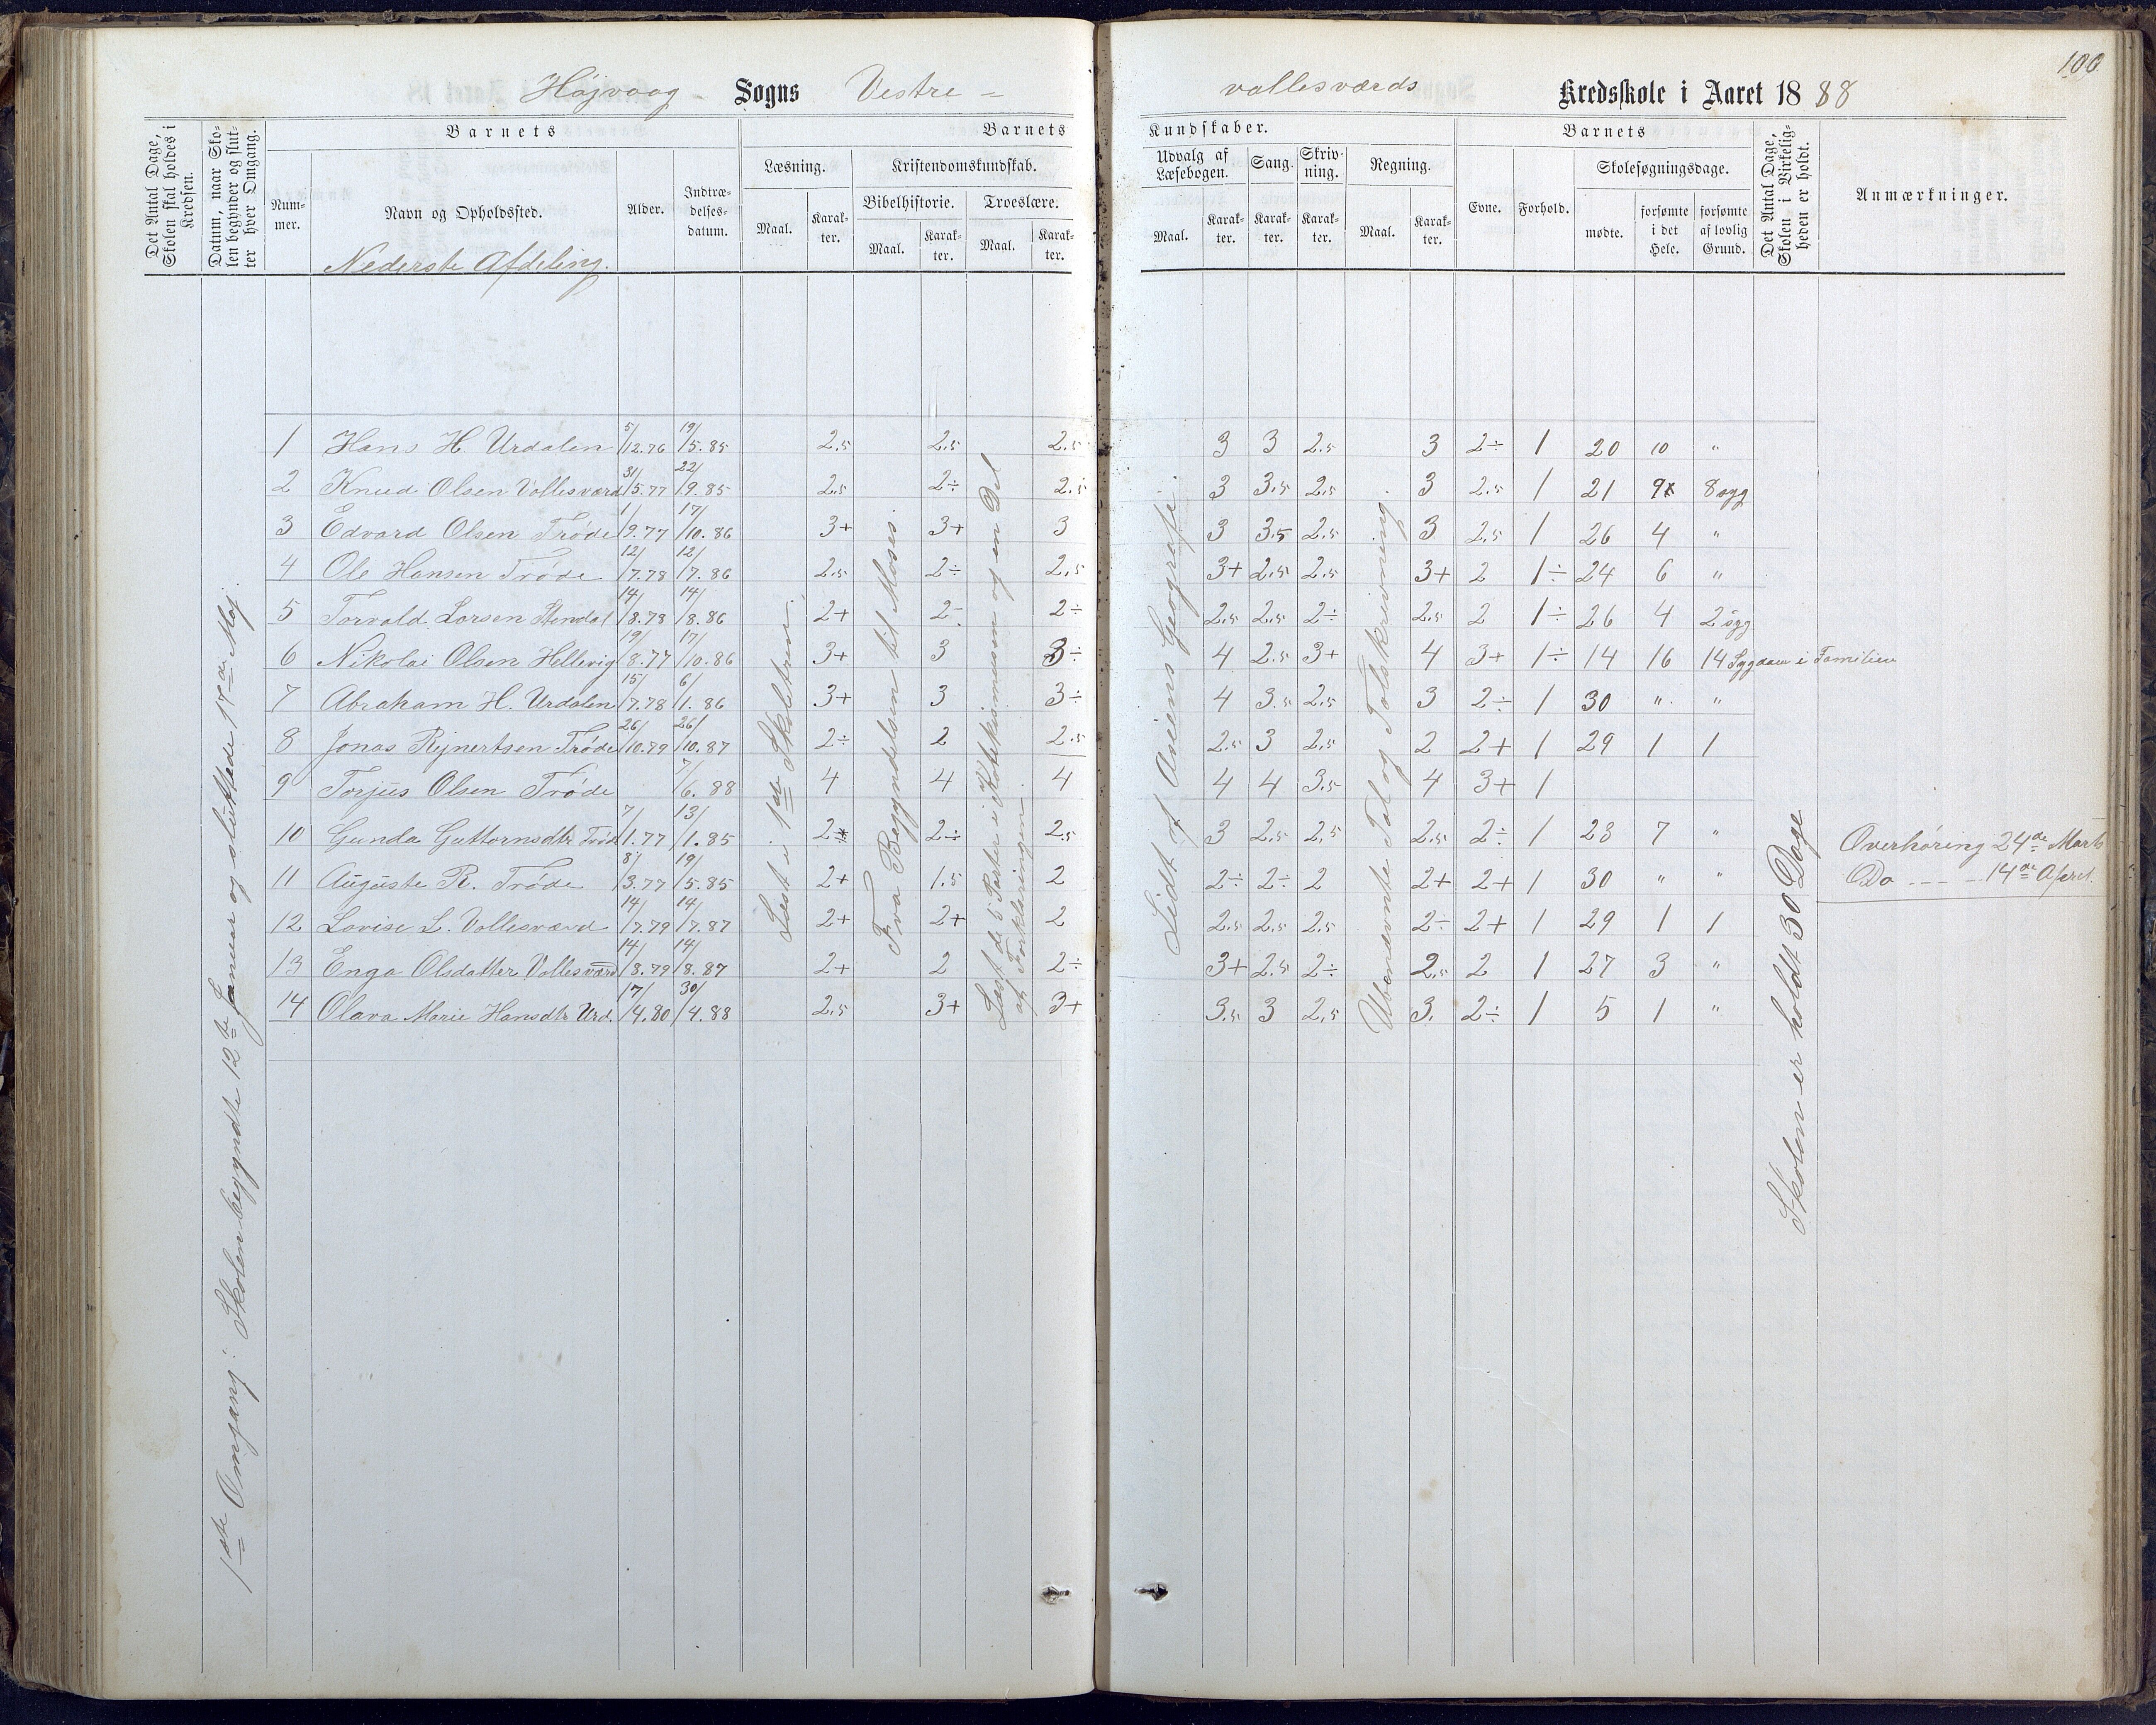 100
Højvaag - Sogns Vestre - vallesværds Kredsskole i Aaret 18 88
Det Antal Dage, Skolen skal holdes i Kredsen.
Datum, naar Skolen begynder og slutter hver Omgang.
Barnets
Nummer.
Navn og Opholdssted.
Alder.
Indtrædelsesdatum.
Barnets Kundskaber.
Læsning.
Maal.
Karakter.
Kristendomskundskab.
Bibelhistorie.
Maal.
Karakter.
Troeslære.
Maal.
Karakter.
Udvalg af Læsebogen.
Maal.
Karakter.
Sang.
Karakter.
Skrivning.
Karakter.
Regning.
Maal.
Karakter.
Barnets
Evne.
Forhold.
Skolesøgningsdage.
mødte.
forsømte i det Hele.
forsømte af lovlig Grund.
Det Antal Dage, Skolen i Virkeligheden er holdt.
Anmærkninger.
Nederste Afdeling.
1 Hans H. Urdalen 5/12.76 19/5.85 2.5 2.5 2.5 3 3 2.5 3 2÷ 1 20 10 "
2 Knud Olsen Vollesværd 31/5.77 22/9.85 2.5 2÷ 2.5 3 3.5 2.5 3 2.5 1 21 9 8 syg
3 Edvard Olsen Trøde 1/9.77 17/10.86 3+ 3+ 3 3 3.5 2.5 3 2.5 1 26 4 "
4 Ole Hansen Trøde 12/7.78 12/7.86 2.5 2÷ 2.5 3+ 2.5 2.5 3+ 2 1÷ 24 6 "
5 Torvald Larsen Stendal 14/8.78 14/8.86 2+ 2- 2÷ 2.5 2.5 2÷ 2.5 2 1÷ 26 4 2 syg
6 Nikolai Olsen Hellevig 19/8.77 17/10.86 3+ 3 3÷ 4 2.5 3+ 4 3+ 1÷ 14 16 14 Sygdom i Familien
7 Abraham H. Urdalen 15/7.78 6/1.86 3+ 3 3÷ 4 3.5 2.5 3 2÷ 1 30 " "
8 Jonas Rejnertsen Trøde 26/10.79 26/10.87 2÷ 2 2.5 2.5 3 2.5 2 2+ 1 29 1 1
9 Torjus Olsen Trøde 7/6.88 4 4 4 4 4 3.5 4 3+ 1
10 Gunda Guttormsdtr Trøde 7/1.77 13/1.85 2÷ 2÷ 2.5 3 2.5 2.5 2.5 2÷ 1 23 7 "
11 Auguste R. Trøde 8/3.77 19/5.85 2+ 1.5 2 2÷ 2÷ 2 2+ 2+ 1 30 " "
12 Lovise L. Vollesværd 14/7.79 14/7.87 2+ 2+ 2 2.5 2.5 2.5 2÷ 2+ 1 29 1 1
13 Enga Olsdatter Vollesværd 14/8.79 14/8.87 2+ 2 2÷ 3+ 2.5 2÷ 2.5 2 1 27 3 "
14 Olava Marie Hansdtr Urd. 17/4.80 30/4.88 2.5 3+ 3+ 3.5 3 2.5 3. 2÷ 1 5 1 "
1ste Omgang: Skolen begyndte 12te Januar og sluttede 17de Maj.
Lest i 1ste Skoletrin.
Fra Begyndelsen til Moses.
Læst de 5 Parter i Katekismusen og en Del
af Forklaringen.
Lidt af Asiens Geografi.
Ubenævnte Tal og Talskrivning.
Skolen er holdt 30 Dage
Overhøring 24de Marts
Do - - - - 14de April.